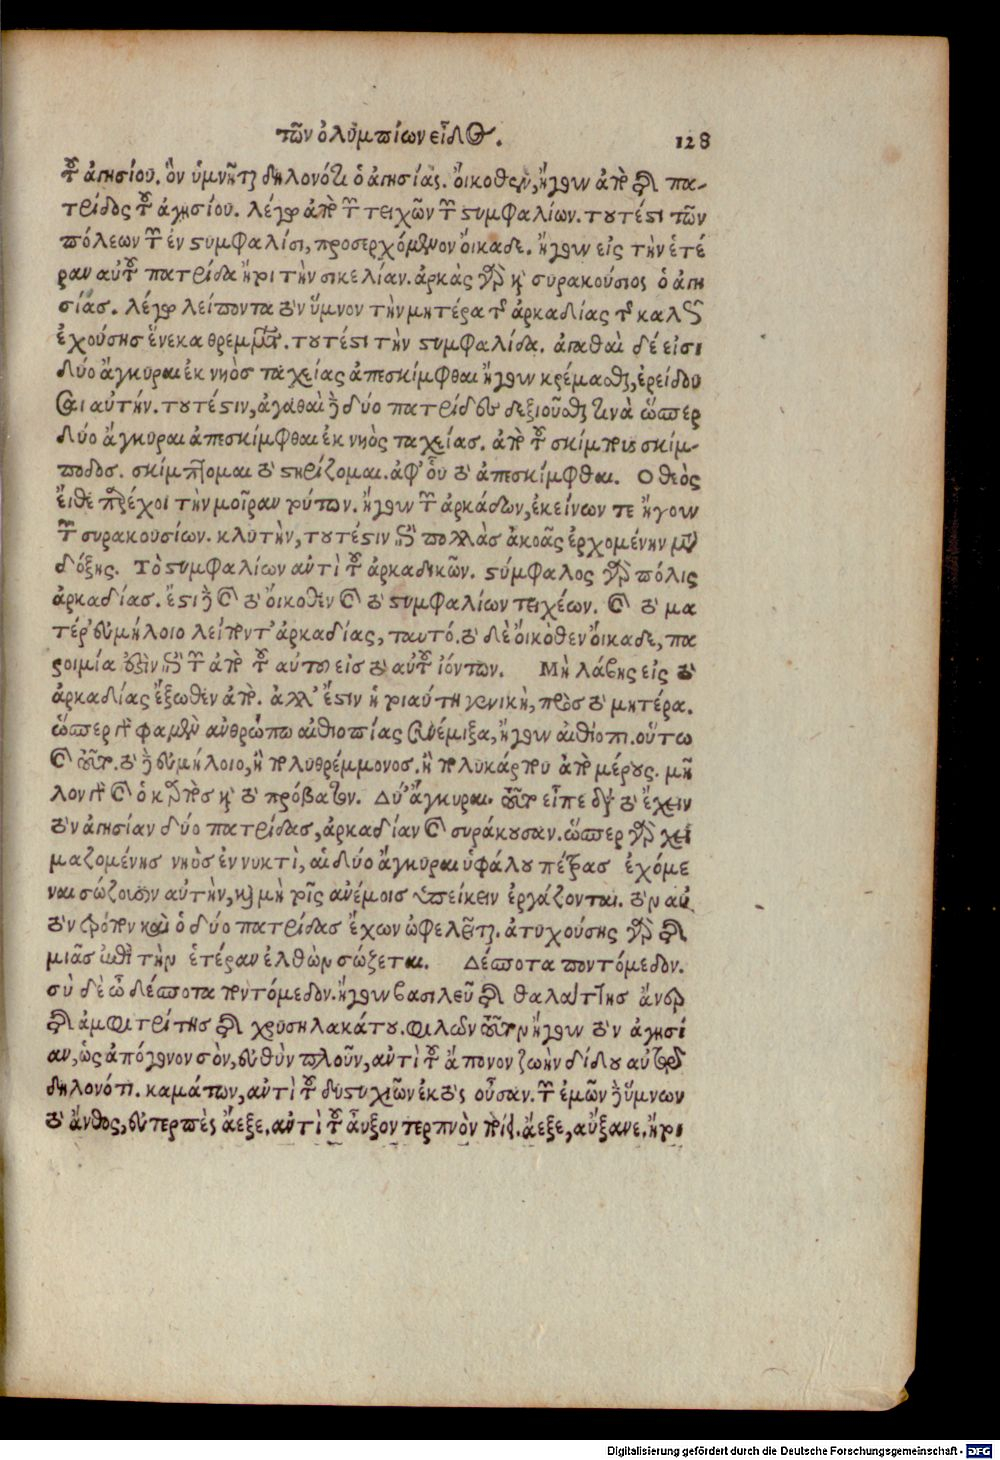 τῶν ὀλυμπίων εἶδος. 128
τοῦ ἁγησίου. ὃν ὑμνεῖται δηλονότι ὁ ἁγησίας. οἴκοθεν, ἤγουν ἀπὸ τῆς πα-
τρίδος τοῦ ἁγησίου. λέγω ἀπὸ τῶν τειχῶν τῶν στυμφαλίων. τουτέστι τῶν
πόλεων τῶν ἐν στυμφαλίσι, προσερχόμενον οἴκαδε. ἤγουν εἰς τὴν ἑτέ
ραν αὐτοῦ πατρίδα ἤτοι τὴν σικελίαν. ἀρκὰς γὰρ καὶ συρακούσιος ὁ ἁγη
σίας. λέγω λείποντα τὸν ὕμνον τὴν μητέρα τῆς ἀρκαδίας τῆς καλῶς
ἐχούσης ἕνεκα θρεμμάτων. τουτέστι τὴν στυμφαλίδα. ἀγαθαὶ δέ εἰσι
δύο ἄγκυραι ἐκ νηὸς ταχείας ἀπεσκίμφθαι ἤγουν κρέμασθαι, ἐρείδου
σαι αὐτήν. τουτέστιν, ἀγαθαὶ δὲ δύο πατρίδες δεξιοῦσθαι τινὰ ὥσπερ
δύο ἄγκυραι ἀπεσκίμφθαι ἐκ νηὸς ταχείας. ἀπὸ τοῦ σκίμπους σκίμ-
ποδος. σκίμπτομαι τὸ στηρίζομαι. ἀφ' οὗ τὸ ἀπεσκίμφθαι. Ο θεὸς
εἴθε παρέχοι τὴν μοῖραν τούτων. ἤγουν τῶν ἀρκάδων, ἐκείνων τε ἤγουν
τῶν συρακουσίων. κλυτὴν, τουτέστιν εἰς πολλὰς ἀκοὰς ἐρχομένην μετὰ
δόξης. Τὸ στυμφαλίων αὐτὶ τοῦ ἀρκαδικῶν. στύμφαλος γὰρ πόλις
ἀρκαδίας. ἔστι δὲ καὶ τὸ οἴκοθεν καὶ τὸ στυμφαλίων τειχέων. καὶ τὸ μα
τέρ' εὐμήλοιο λείποντ' ἀρκαδίας, ταυτό. τὸ δὲ οἴκοθεν οἴκαδε, πα
ροιμία ἐστὶν ἐπὶ τῶν ἀπὸ τοῦ αὐτοῦ εἰς τὸ αὐτὸ ἰόντων. Μὴ λάβῃς εἰς τὸ
ἀρκαδίας ἔξωθεν ἀπό. ἀλλ' ἔστιν ἡ τοιαύτη γενικὴ, πρὸς τὸ μητέρα.
ὥσπερ καὶ φαμὲν ἀνθρώπῳ αἰθιοπίας συνέμιξα, ἤγουν αἰθίοπι. οὕτω
καὶ τοῦτο. τὸ δὲ εὐμήλοιο, ἢ πολυθρέμμονος. ἢ πολυκάρπου ἀπὸ μέρους. μῆ
λον καὶ ὁ καρπὸς καὶ τὸ πρόβατον. Δύ' ἄγκυραι. τοῦτο εἶπε διὰ τὸ ἔχειν
τὸν ἁγησίαν δύο πατρίδας, ἀρκαδίαν καὶ συράκουσαν. ὥσπερ γὰρ χει
μαζομένης νηὸς ἐν νυκτὶ, αἱ δύο ἄγκυραι ὑφάλου πέτρας ἐχόμε
ναι σώζουσιν αὐτὴν, καὶ μὴ τοῖς ἀνέμοις ὑπείκειν ἐργάζονται. τὸν αὐ
τὸν τρόπον καὶ ὁ δύο πατρίδας ἔχων ὠφελεῖται. ἀτυχούσης γὰρ τῆς
μιᾶς ἐπὶ τὴν ἑτέραν ἐλθὼν σώζεται. Δέσποτα ποντόμεδον.
σὺ δὲ ὦ δέσποτα ποντόμεδον. ἤγουν βασιλεῦ τῆς θαλάττης ἄνερ
τῆς ἀμφιτρίτης τῆς χρυσηλακάτου. φίλων τοῦτον ἤγουν τὸν ἁγησί
αν, ὡς ἀπόγονον σὸν, εὐθὺν πλοῦν, αὐτὶ τοῦ ἄπονον ζωὴν δίδου αὐτῷ
δηλονότι. καμάτων, αὐτὶ τοῦ δυστυχιῶν ἐκτὸς οὖσαν. τῶν ἐμῶν δὲ ὕμνων
τὸ ἄνθος, εὐτερπὲς ἄεξε. αὐτὶ τοῦ αὖξον τερπνὸν ποίει. ἄεξε, αὔξανε. ἤτοι
Digitalisierung gefördert durch die Deutsche Forschungsgemeinschaft - DFG